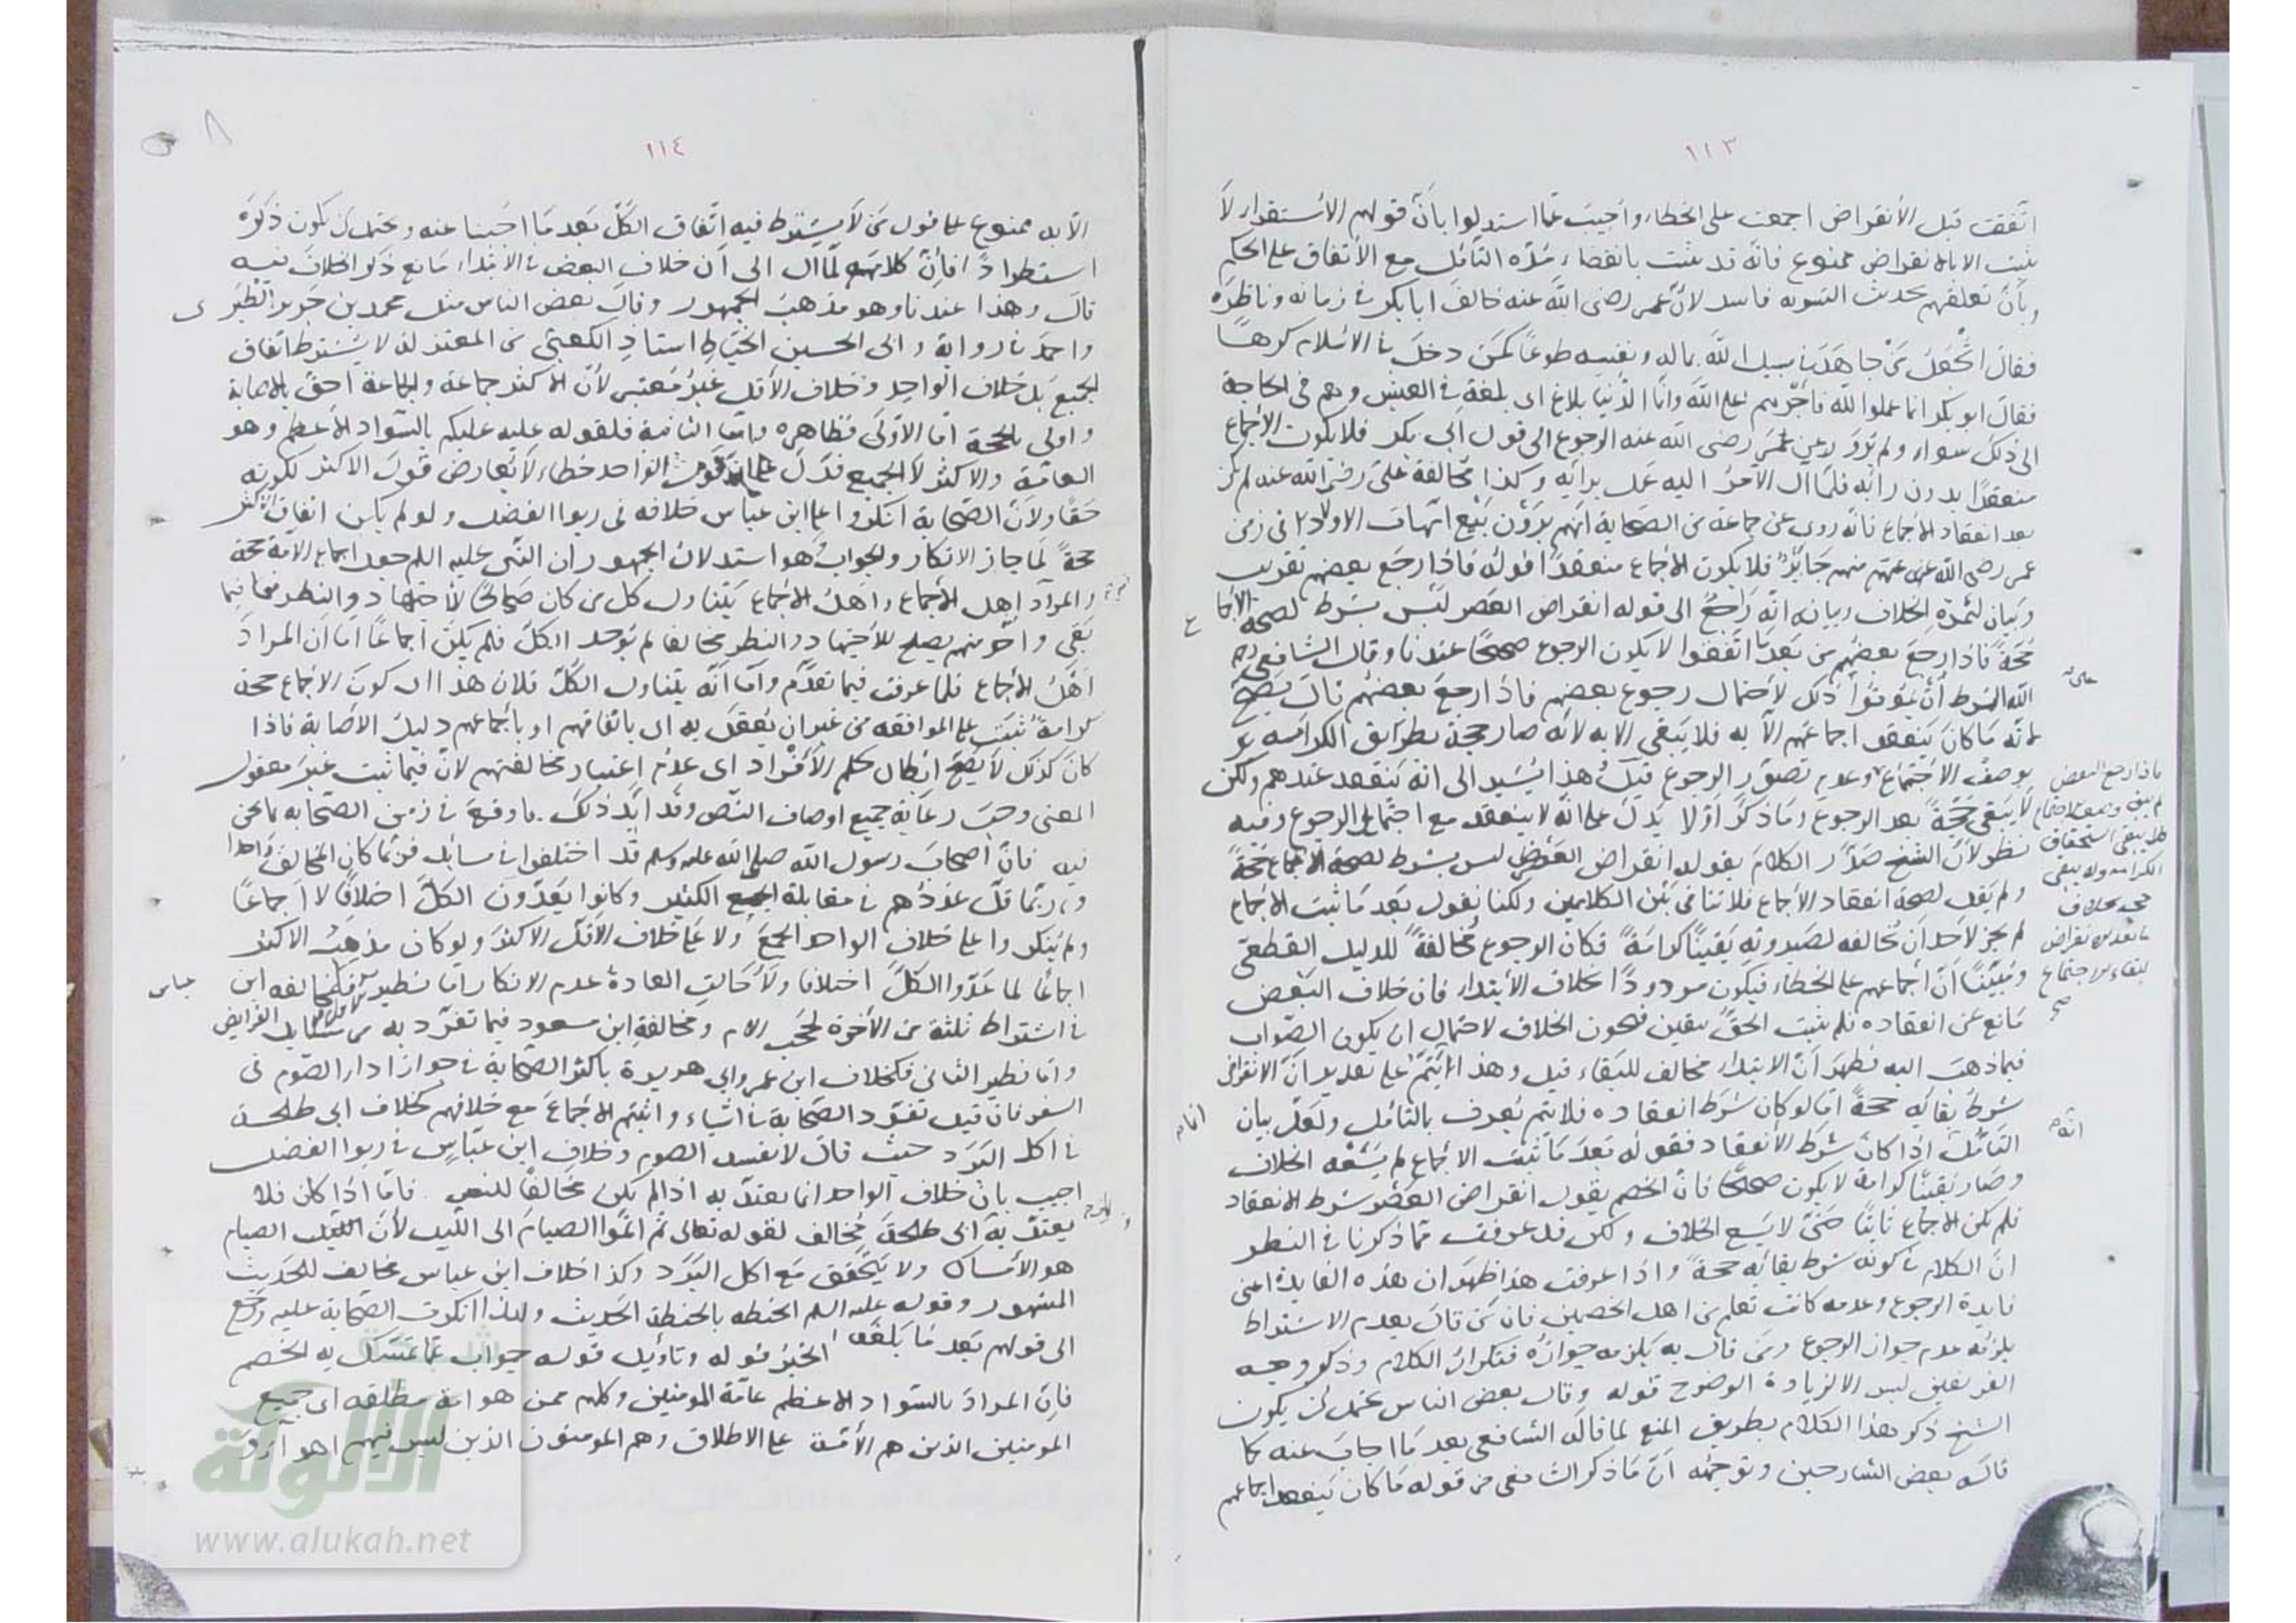 ١١٣
اتفقت قبل الانقراض اجمعت على الخطاء واجيب عما استدلوا بان قولهم الاستقرار لا
يثبت الا بالانقراض ممنوع فانه قد يثبت بانقضاء مدة التأمل مع الاتفاق على الحكم
وبان تعلقهم بحديث التسوية فاسد لان عمر رضى الله عنه خالف ابا بكر فى زمانه وناظره
فقال اتجعل من جاهد فى سبيل الله بماله ونفسه طوعا كمن دخل فى الاسلام كرها
فقال ابو بكر انما عملوا لله فاجرهم على الله وانما الدنيا بلاغ اى بلغة فى العيش وهم فى الحاجة
الى ذلك سواء ولم يرو عن عمر رضى الله عنه الرجوع الى قول ابى بكر فلا يكون الاجماع
منعقدا بدون رايه فلما ال الامر اليه عمل برأيه وكذا مخالفة على رضى الله عنه لم تكن
بعد انعقاد الاجماع فانه روى عن جماعة من الصحابة انهم يرون بيع امهات الاولاد فى زمن
عمر رضى الله عنه منهم جابر فلا يكون الاجماع منعقدا قوله فاذا رجع بعضهم تقريب
وبيان لثمرة الخلاف وبيانه انه راجع الى قوله انقراض العصر ليس بشرط لصحة الاجماع
حجة فاذا رجع بعضهم من بعد ما اتفقوا لا يكون الرجوع صحيحا عندنا وقال الشافعى رح
الشرط ان يموتوا على ذلك لاحتمال رجوع بعضهم فاذا رجع بعضهم قال يصح
لانه ما كان ينعقد اجماعهم الا به فلا يبقى الا به لانه صار حجة بطريق الكرامة
بوصف الاجتماع وعدم تصور الرجوع قيل هذا يشير الى انه ينعقد عندهم ولكن
لا يبقى حجة بعد الرجوع وما ذكر اولا يدل على انه لا ينعقد مع احتمال الرجوع وفيه
نظر لان الشيخ صدر الكلام بقوله انقراض العصر ليس بشرط لصحة الاجماع حجة
ولم يقل لصحة انعقاد الاجماع فلا تنافى بين الكلامين ولكنا نقول بعد ما ثبت الاجماع
لم يجز لاحد ان يخالفه لصيرورته يقينا كرامة فكان الرجوع مخالفة للدليل القطعى
ومبينا ان اجماعهم على الخطاء فيكون مردودا بخلاف الابتداء فان خلاف البعض
مانع عن انعقاده فلم يثبت الحق بيقين فيجوز الخلاف لاحتمال ان يكون الصواب
فيما ذهب اليه فظهر ان الابتداء مخالف للبقاء قيل وهذا انما يتم على تقدير ان الانقراض
شرط بقائه حجة اما لو كان شرط انعقاده فلا يتم يعرف بالتأمل ولعل بيان
التأمل انه اذا كان شرط الانعقاد فقوله بعد ما ثبت الاجماع لم يسعه الخلاف
وصار يقينا كرامة لا يكون صحيحا فان الخصم يقول انقراض العصر شرط الانعقاد
فلم يكن الاجماع ثابتا حتى لا يسع الخلاف ولكن قد عرفت مما ذكرنا فى النظر
ان الكلام فى كونه شرط بقائه حجة واذا عرفت هذا ظهر ان هذه الفايدة اعنى
فايدة الرجوع وعدمه كانت تعلم من اهل الخصمين فان من قال بعدم الاشتراط
يلزمه عدم جواز الرجوع ومن قال به يلزمه جوازه فتكرار الكلام وذكر وجه
الفريقين ليس الا لزيادة الوضوح قوله وقال بعض الناس يحتمل ان يكون
الشيخ ذكر هذا الكلام بطريق المنع لما قاله الشافعى بعد ما اجاب عنه كما
قاله بعض الشارحين وتوجيهه ان ما ذكر الشافعى من قوله ما كان ينعقد اجماعهم
فاذا رجع البعض
لم يبق وصف الاجتماع
فلا يبقى استحقاق
الكرامة ولا يبقى
حجة بخلاف
ما بعد الانقراض
لبقاء الاجتماع
صح
١١٤
الا به ممنوع على قول من لا يشترط فيه اتفاق الكل بعد ما اجبنا عنه ويحتمل ان يكون ذكره
استطرادا فان كلامه لما ال الى ان خلاف البعض فى الابتداء مانع ذكر الخلاف فيه
قال وهذا عندنا وهو مذهب الجمهور وقال بعض الناس مثل محمد بن جرير الطبرى
واحمد فى رواية وابى الحسين الخياط استاد الكعبى من المعتزلة لا يشترط اتفاق
الجميع بل خلاف الواحد وخلاف الاقل غير معتبر لان الاكثر جماعة والجماعة احق بالاصابة
واولى بالحجة اما الاولى فظاهرة واما الثانية فلقوله عليه عليكم بالسواد الاعظم وهو
العامة والاكثر لا الجميع فدل على ان قول الواحد خطاء لا يعارض قول الاكثر لكونه
حقا ولان الصحابة انكروا على ابن عباس خلافه فى ربوا الفضل ولو لم يكن اتفاق الاكثر
حجة لما جاز الانكار والجواب هو استدلال الجمهور ان النبى عليه السلام جعل اجماع الامة حجة
والمراد اهل الاجماع واهل الاجماع يتناول كل من كان صالحا للاجتهاد والنظر فما
بقى واحد منهم يصلح للاجتهاد والنظر مخالفا لم يوجد الكل فلم يكن اجماعا اما ان المراد
اهل الاجماع فلما عرفت فيما تقدم واما انه يتناول الكل فلان هذا اى كون الاجماع حجة
كرامة ثبتت على الموافقة من غير ان يعقل به اى باتفاقهم او باجماعهم دليل الاصابة فاذا
كان كذلك لا يصح ابطال حكم الافراد اى عدم اعتبار مخالفتهم لان فيما ثبت غير معقول
المعنى وجب رعاية جميع اوصاف النص وقد ايد ذلك ما وقع فى زمن الصحابة ما نحن
فيه فان اصحاب رسول الله صلى الله عليه وسلم قد اختلفوا فى مسائل فربما كان المخالف واحدا
وربما قل عددهم فى مقابلة الجمع الكثير وكانوا يعدون الكل اختلافا لا اجماعا
ولم ينكروا على خلاف الواحد الجمع ولا على خلاف الاقل الاكثر ولو كان مذهب الاكثر
اجماعا لما عدوا الكل اختلافا ولاحالت العادة عدم الانكار اما نظير الاول فكمخالفه ابن عباس
فى اشتراط ثلثة من الاخوة لحجب الام ومخالفة ابن مسعود فيما تفرد به من مسايل الفرايض
واما نظير الثانى فكخلاف ابن عمر وابى هريرة باكثر الصحابة فى جواز اداء الصوم فى
السفر فان قيل تفرد الصحابة فى اشياء واثبتم الاجماع مع خلافهم كخلاف ابى طلحة
فى اكل البرد حيث قال لا يفسد الصوم وخلاف ابن عباس فى ربوا الفضل
اجيب بان خلاف الواحد انما يعتد به اذا لم يكن مخالفا للنص فاما اذا كان فلا
يعتد به وابى طلحة مخالف لقوله تعالى ثم اتموا الصيام الى الليل لان الصيام
هو الامساك ولا يتحقق مع اكل البرد وكذا خلاف ابن عباس مخالف للحديث
المشهور وقوله عليه السلم الحنطه بالحنطة الحديث ولهذا انكرت الصحابة عليه ورجع
الى قولهم بعد ما بلغه الخبر قوله وتأويل قوله جواب عما تمسك به الخصم
فان المراد بالسواد الاعظم عامة المومنين وكلهم ممن هو امة مطلقه اى جميع
المومنين الذين هم الامة على الاطلاق وهم المومنون الذين ليس فيهم اهوآ
الألوكة
www.alukah.net